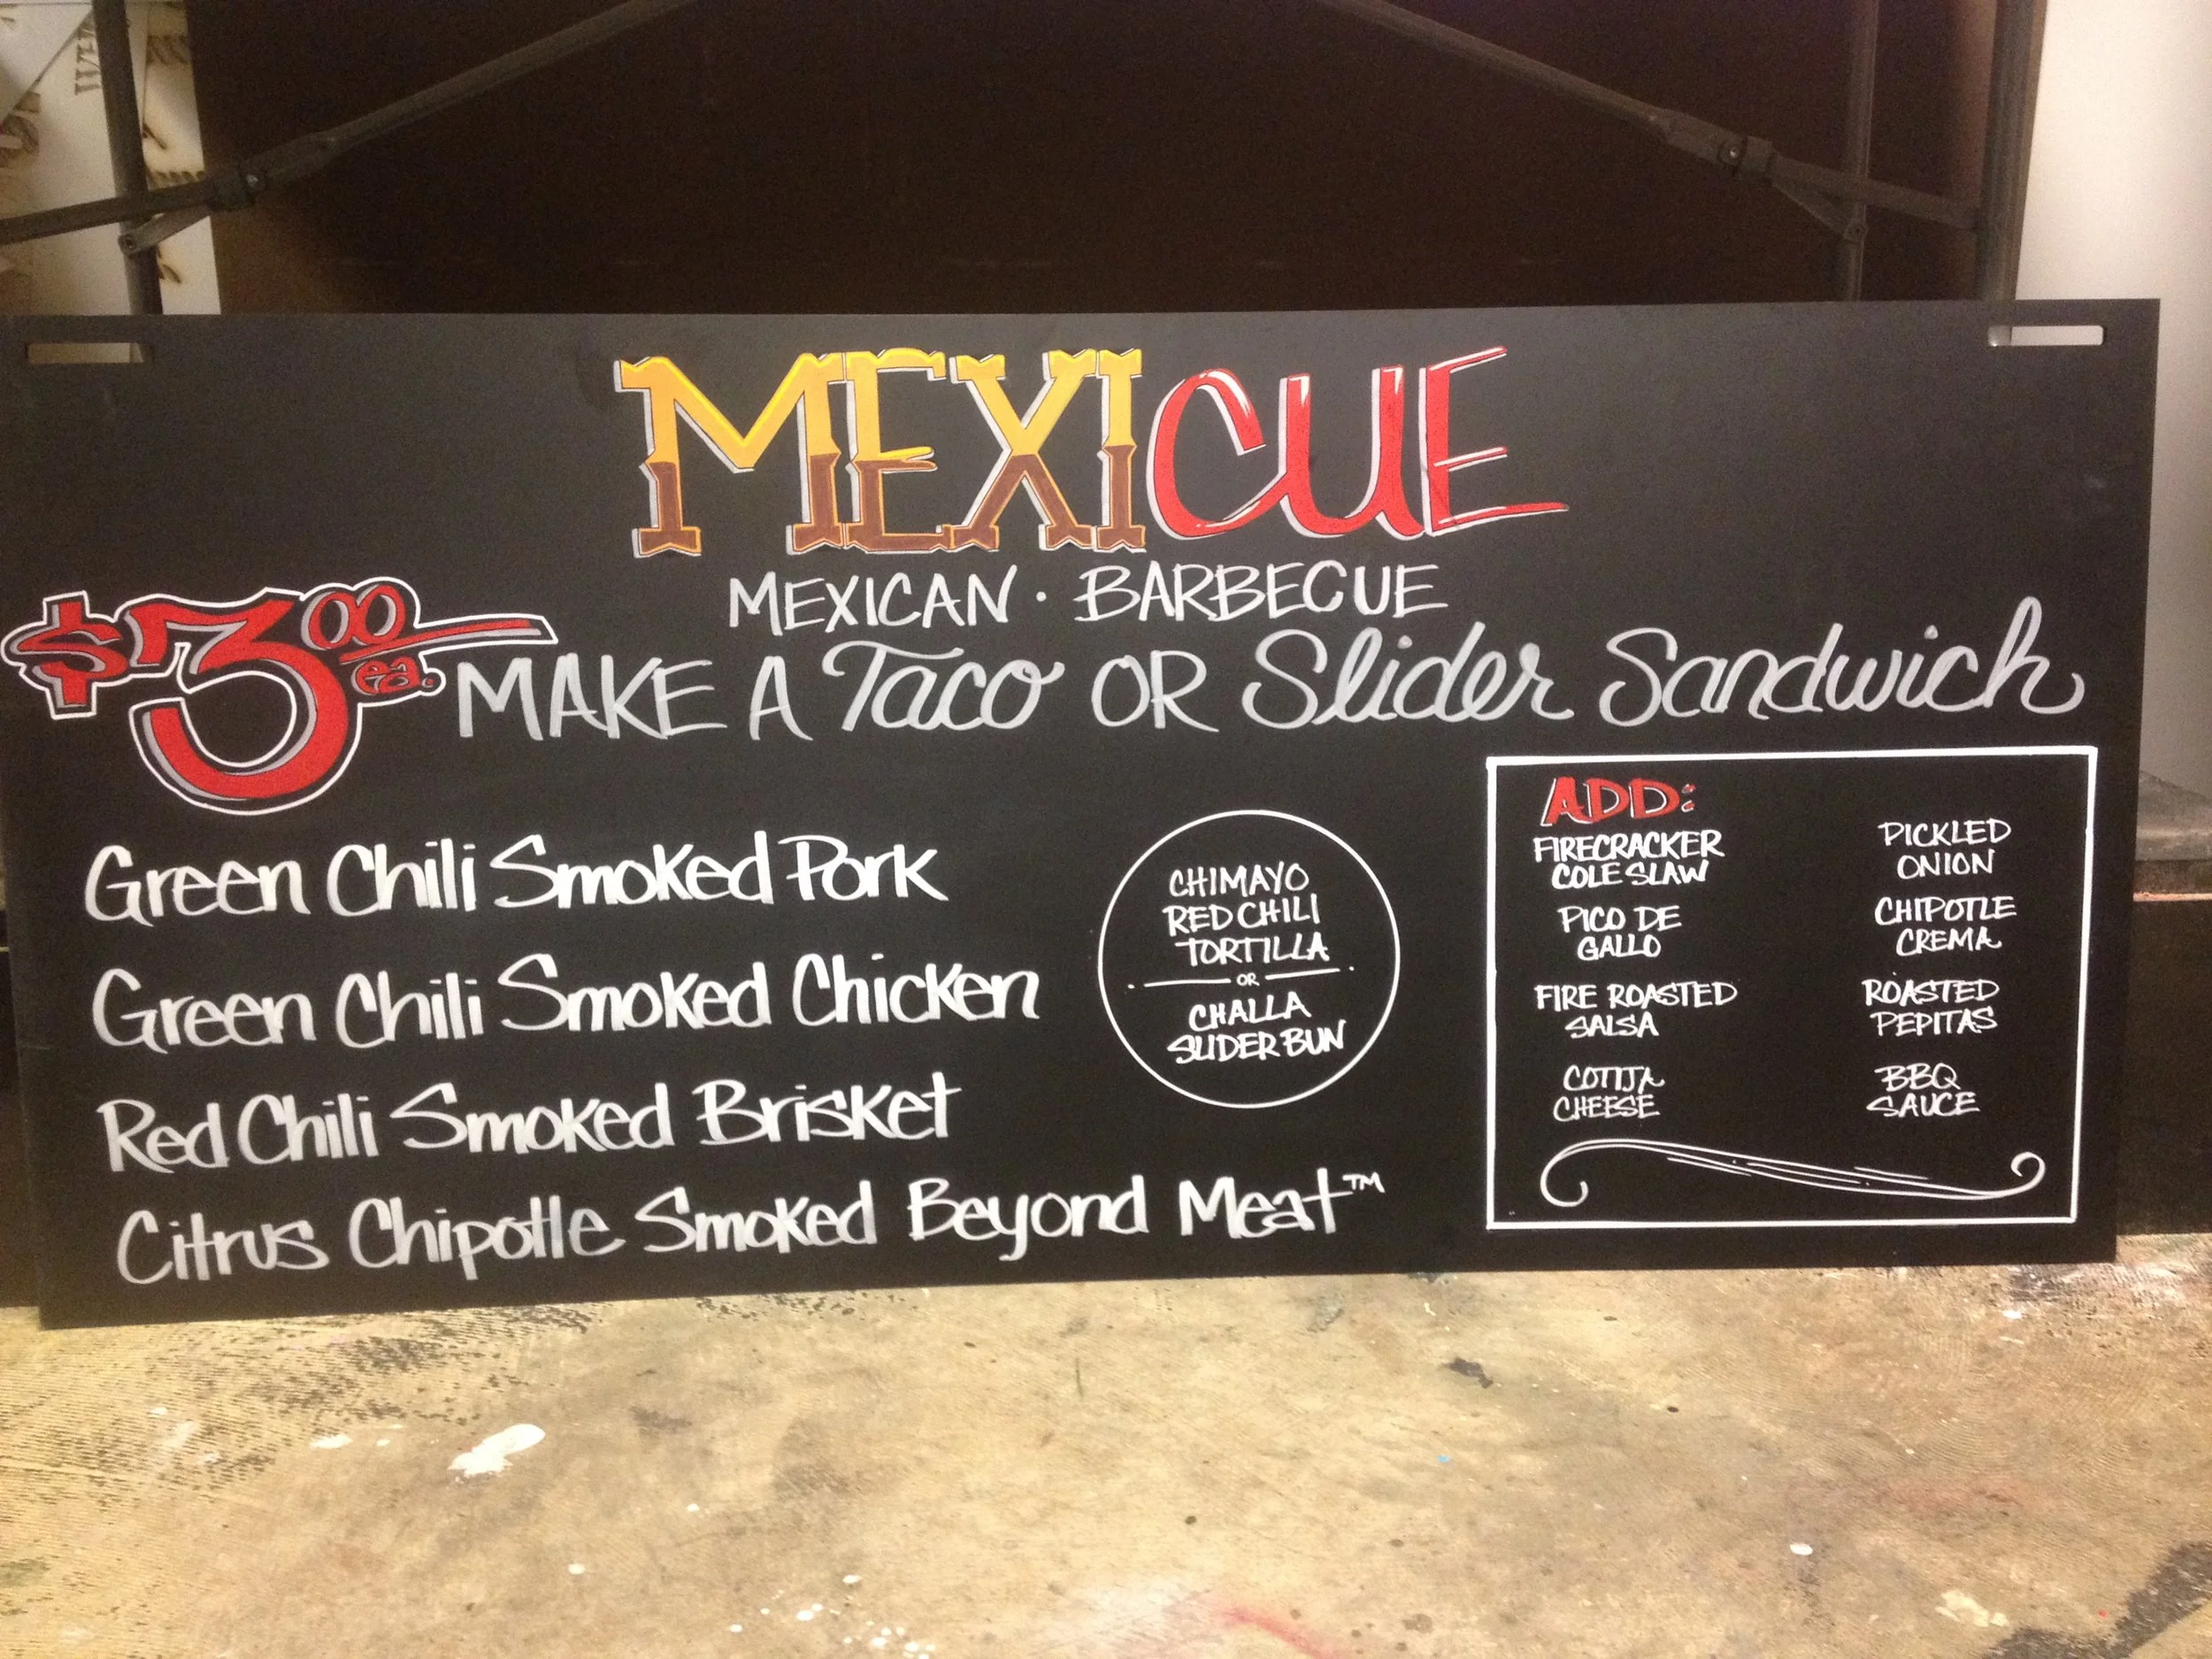 MEXICUE
MEXICAN · BARBECUE
$3.00 ea. MAKE A Taco OR Slider Sandwich
Green Chili Smoked Pork
Green Chili Smoked Chicken
Red Chili Smoked Brisket
Citrus Chipotle Smoked Beyond Meat™
CHIMAYO
RED CHILI
TORTILLA
OR
CHALLA
SLIDER BUN
ADD:
FIRECRACKER
COLE SLAW
PICO DE
GALLO
FIRE ROASTED
SALSA
COTIJA
CHEESE
PICKLED
ONION
CHIPOTLE
CREMA
ROASTED
PEPITAS
BBQ
SAUCE